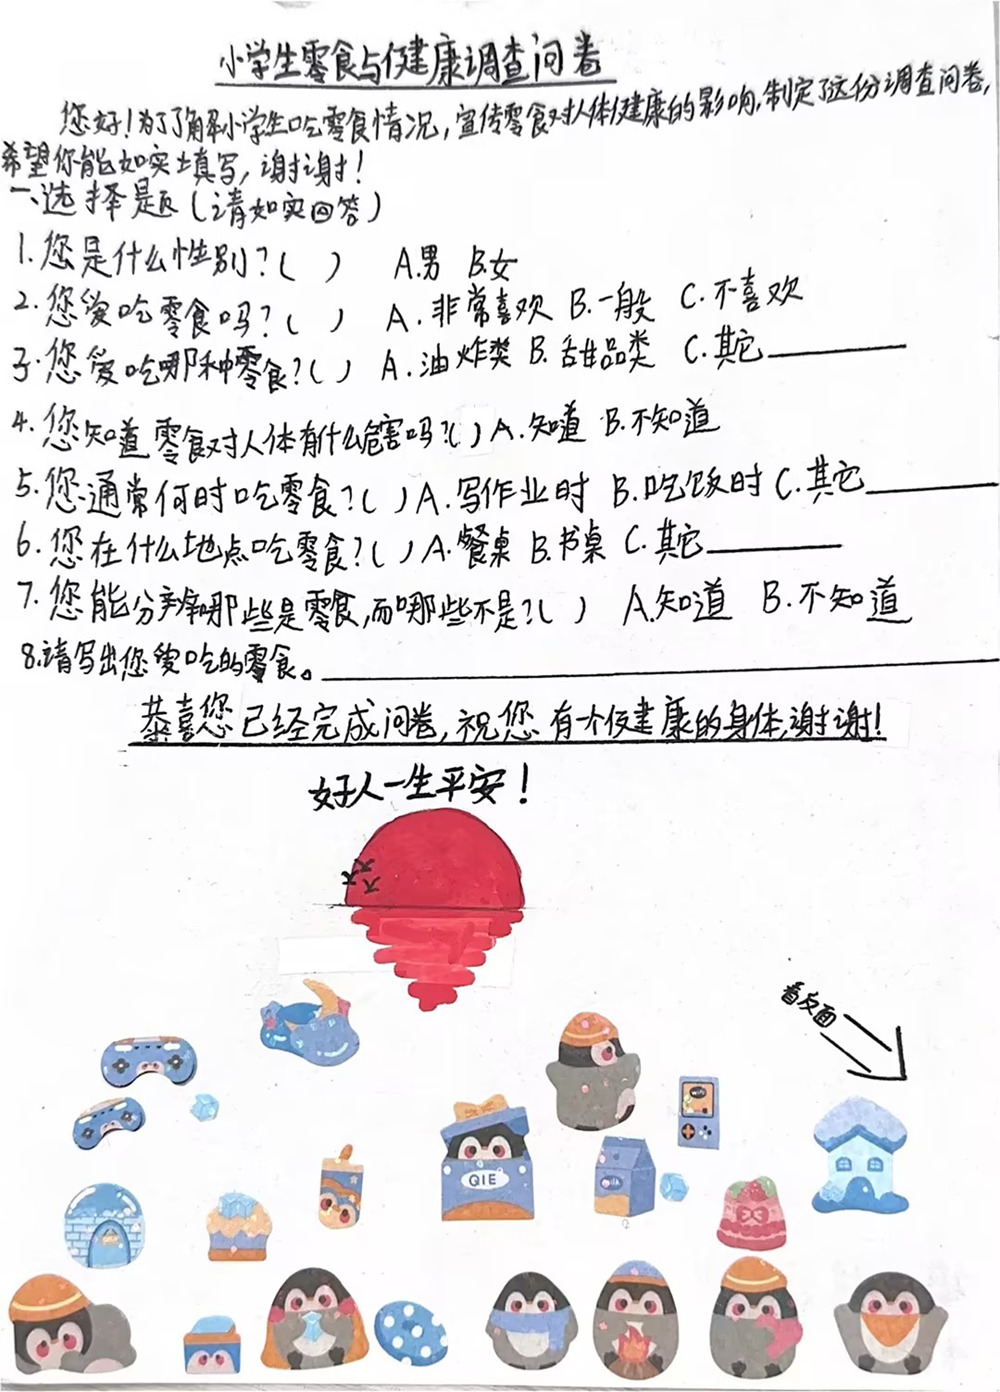 小学生零食与健康调查问卷
您好!为了了解小学生吃零食情况,宣传零食对人体健康的影响,制定了这份调查问卷,
希望你能如实填写,谢谢!
一、选择题(请如实回答)
1.您是什么性别?( ) A.男 B.女
2.您爱吃零食吗?( ) A.非常喜欢 B.一般 C.不喜欢
3.您爱吃哪种零食?( ) A.油炸类 B.甜品类 C.其它
4.您知道零食对人体有什么危害吗?( )A.知道 B.不知道
5.您通常何时吃零食?( )A.写作业时 B.吃饭时 C.其它
6.您在什么地点吃零食?( )A.餐桌 B.书桌 C.其它
7.您能分辨哪些是零食,而哪些不是?( ) A.知道 B.不知道
8.请写出您爱吃的零食。
恭喜您已经完成问卷,祝您有个健康的身体,谢谢!
好人一生平安!
看反面
QIE